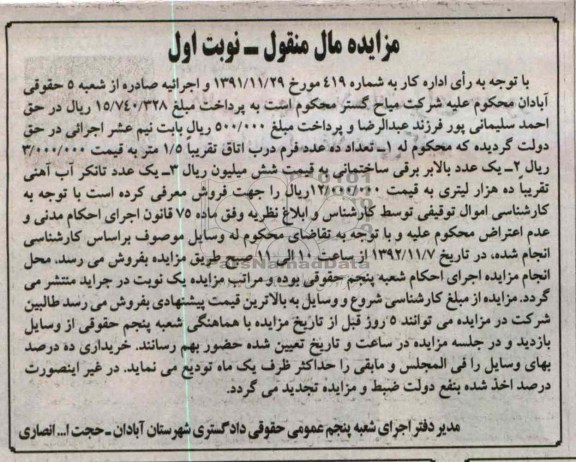 مزایده مال منقول ــ نوبت اول
با توجه به رأی اداره کار به شماره ۴۱۹ مورخ ۱۳۹۱/۱۱/۲۹ و اجرائیه صادره از شعبه ۵ حقوقی
آبادان محکوم علیه شرکت میاح گستر محکوم است به پرداخت مبلغ ۱۵/۷۴۰/۳۲۸ ریال در حق
احمد سلیمانی پور فرزند عبدالرضا و پرداخت مبلغ ۵۰۰/۰۰۰ ریال بابت نیم عشر اجرائی در حق
دولت گردیده که محکوم له ۱ـ تعداد ده عدد فرم درب اتاق تقریبا ۱/۵ متر به قیمت ۳/۰۰۰/۰۰۰
ریال ۲ـ یک عدد بالابر برقی ساختمانی به قیمت شش میلیون ریال ۳ـ یک عدد تانکر آب آهنی
تقریبا ده هزار لیتری به قیمت ۱۲/۰۰۰/۰۰۰ریال را جهت فروش معرفی کرده است با توجه به
کارشناسی اموال توقیفی توسط کارشناس و ابلاغ نظریه وفق ماده ۷۵ قانون اجرای احکام مدنی و
عدم اعتراض محکوم علیه و با توجه به تقاضای محکوم له وسایل موصوف براساس کارشناسی
انجام شده، در تاریخ ۱۳۹۲/۱۱/۷ از ساعت ۱۰ الی ۱۱ صبح طریق مزایده بفروش می رسد. محل
انجام مزایده اجرای احکام شعبه پنجم حقوقی بوده و مراتب مزایده یک نوبت در جراید منتشر می
گردد. مزایده از مبلغ کارشناسی شروع و وسایل به بالاترین قیمت پیشنهادی بفروش می رسد طالبین
شرکت در مزایده می توانند ۵ روز قبل از تاریخ مزایده با هماهنگی شعبه پنجم حقوقی از وسایل
بازدید و در جلسه مزایده در ساعت و تاریخ تعیین شده حضور بهم رسانند. خریداری ده درصد
بهای وسایل را فی المجلس و مابقی را حداکثر ظرف یک ماه تودیع می نماید. در غیر اینصورت
درصد اخذ شده بنفع دولت ضبط و مزایده تجدید می گردد.
مدیر دفتر اجرای شعبه پنجم عمومی حقوقی دادگستری شهرستان آبادان ـ حجت ا... انصاری